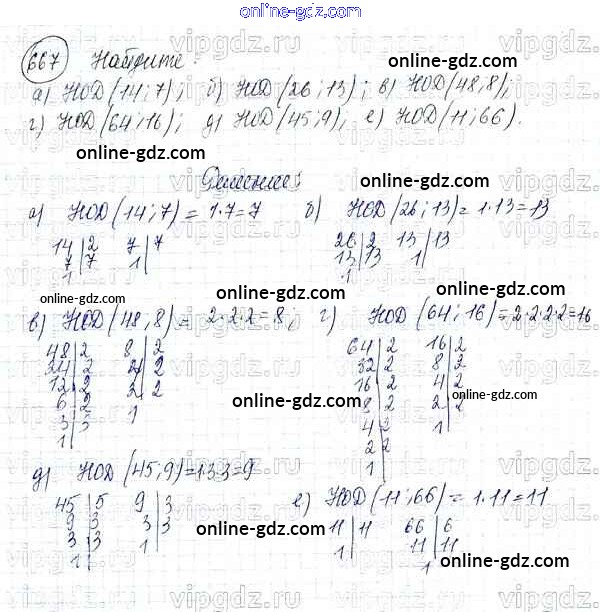 online-gdz.com
667 Найдите:
а) НОД(14;7); б) НОД(26;13); в) НОД(48,8);
г) НОД(64;16); д) НОД(45;9), е) НОД(11;66).
online-gdz.com
Решение:
а) НОД(14;7) = 1·7=7 б) НОД(26;13)= 1·13=13
14|2 7|7 26|2 13|13
7|7 1| 13|13 1|
1 1
online-gdz.com online-gdz.com
в) НОД(48,8) = 2·2·2=8; г) НОД(64;16)=2·2·2·2=16
48|2 8|2 64|2 16|2
24|2 4|2 32|2 8|2
12|2 2|2 16|2 4|2
6|2 1 8|2 2|2
3|3 4|2 1
1| 2|2
1|
online-gdz.com online-gdz.com
д) НОД(45;9)=1·3·3=9
45|5 9|3 е) НОД(11;66)= 1·11=11
9|3 3|3 11|11 66|6
3|3 1| 1| 11|11
1| 1
online-gdz.com online-gdz.com
vipgdz.ru